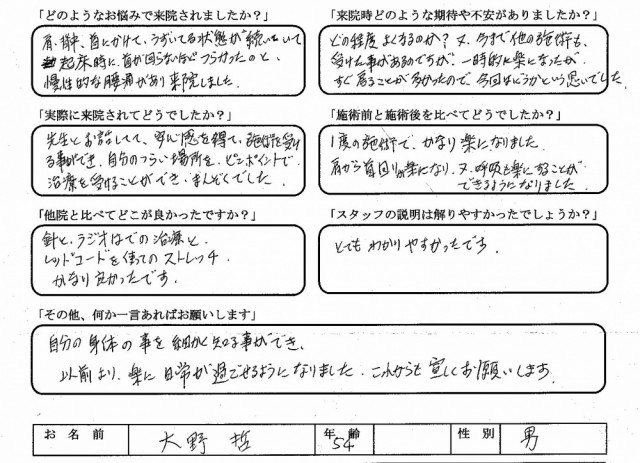 「どのようなお悩みで来院されましたか？」
肩、背中、首にかけて、うずいてる状態が続いていて
起床時に、首が回らないほどつらかったのと、
慢性的な腰痛があり来院しました。
「来院時どのような期待や不安がありましたか？」
どの程度よくなるのか？又、今まで他の施術も、
受けた事があるのですが、一時的に楽になったが、
すぐ戻ることが多かったので、今回はどうかという思いでした。
「実際に来院されてどうでしたか？」
先生とお話しして、安心感を得て、施術を受け
る事ができ、自分のつらい場所を、ピンポイントで
治療を受けることができ、まんぞくでした。
「施術前と施術後を比べてどうでしたか？」
1度の施術で、かなり楽になりました。
肩から首回りが楽になり、又、呼吸も楽にすることが
できるようになりました。
「他院と比べてどこが良かったですか？」
針と、ラジオはでの治療と、
レッドコードを使ってのストレッチ
かなり良かったです。
「スタッフの説明は解りやすかったでしょうか？」
とても わかりやすかったです。
「その他、何か一言あればお願いします」
自分の身体の事を細かく知る事ができ、
以前より、楽に日常が過ごせるようになりました。これからも宜しくお願いします。
お名前 大野 哲 年齢 54 性別 男